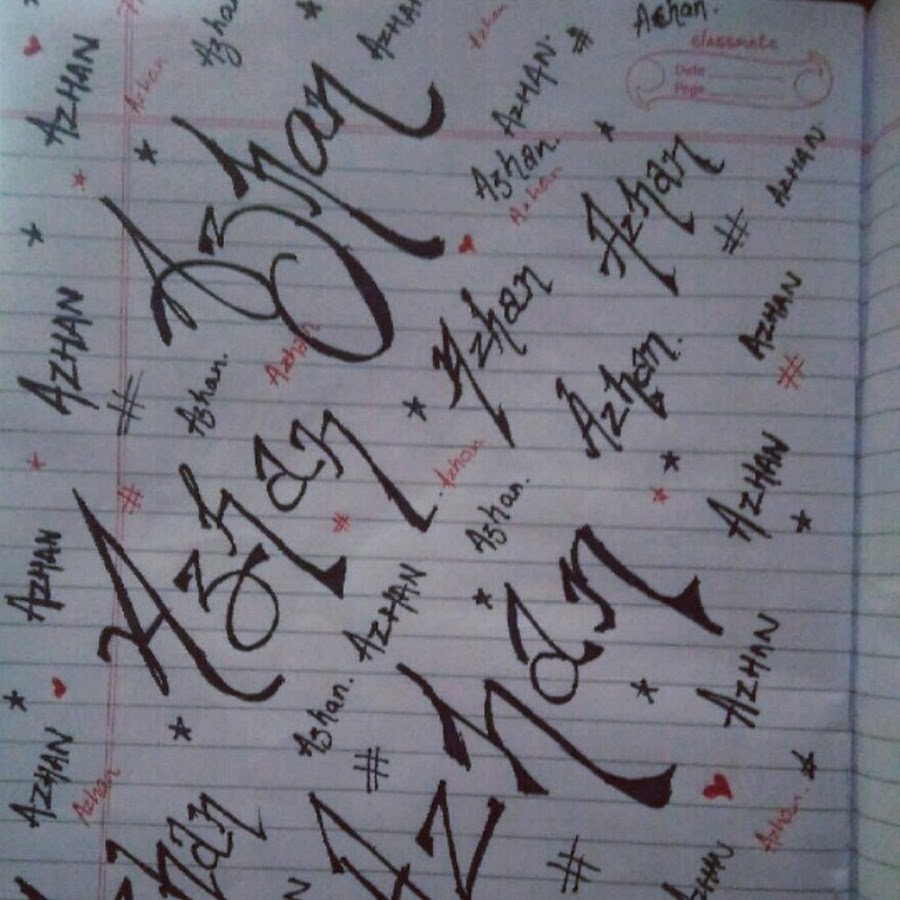 Azhan.
classmate
Date
Page
Azhan
AZHAN
Azhan
AZHAN
Azhan
AZHAN
Azhan
Azhan
Azhan.
Azhan
Azhan
AZHAN
Azhan
AZHAN
AZHAN
Azhan.
Azhan
Azhan
Azhan.
Azhan
Azhan
Azhan.
AZHAN
AZHAN
AZHAN
Azhan.
Azhan
AZHAN
AZHAN
Azhan
Azhan.
AZHAN